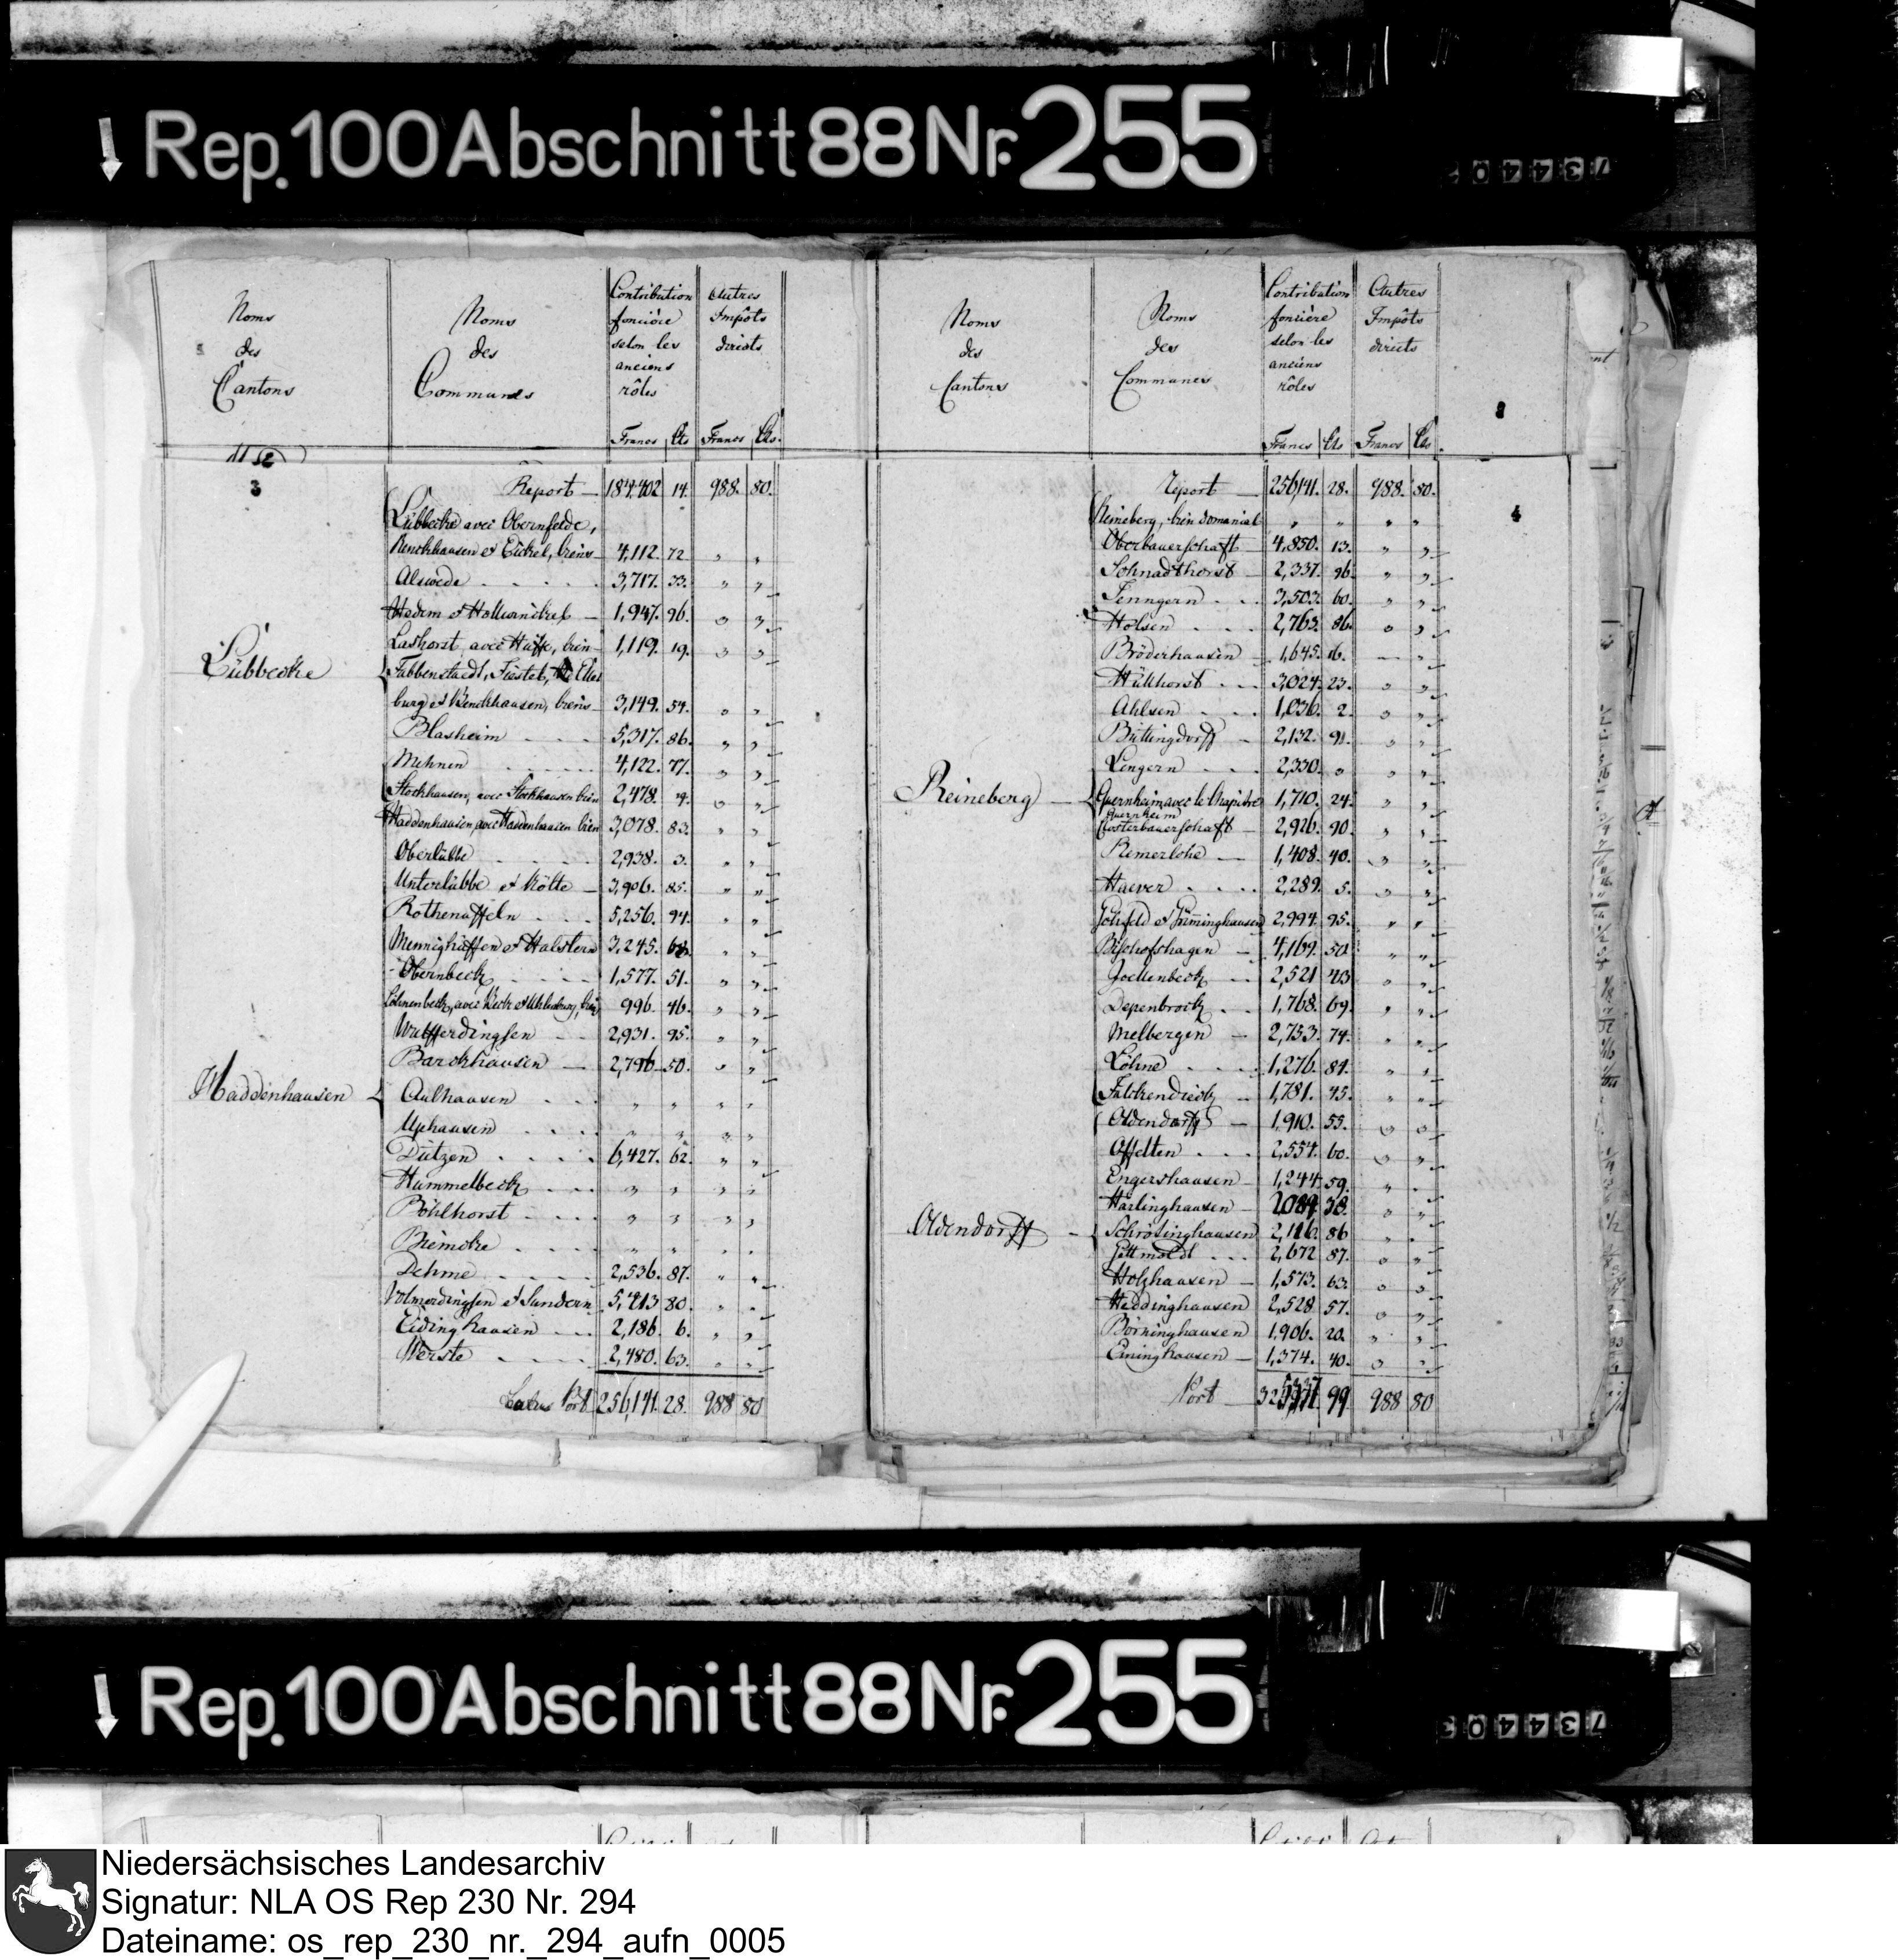 Rep. 100 Abschnitt 88 Nr. 255
73440
Noms des Cantons
Noms des Communes
Contribution foncière selon les anciens rôles
Autres Impôts directs
Francs Cts Francs Cts.
3
Report 184,402 14. 988. 80.
Lübbecke
Lübbecke avec Obernfelde,
Renckhausen et Eickel, biens 4,112. 72 " "
Alswede 3,717. 33. " "
Hedem et 1,947. 96. " "
Lashorst avec Hüffe, bien 1,119. 19. " "
Fabbenstaedt, Fiestel, Elle
burg et Benckhausen, biens 3,149. 54. " "
Blasheim 5,317. 86. " "
Mehnen 4,122. 77. " "
Stockhausen, avec Stockhausen bien 2,478. 4. " "
Haddenhausen
Haddenhausen, avec Haddenhausen bien 3,078. 83. " "
Oberlübbe 2,938. 3. " "
Unterlübbe et 3,906. 85. " "
Rothenuffeln 5,256. 94. " "
Mennighüffen et Halstern 3,245. " "
Obernbeck 1,577. 51. " "
Löhnenbeck, avec Beck et Uhlenburg, biens 996. 46. " "
Wulfferdingsen 2,931. 95. " "
Barckhausen 2,796. 50. " "
Aulhausen " " " "
Uphausen " " " "
Dützen 6,427. 62. " "
Hummelbeck " " " "
Böhlhorst " " " "
Biemcke " " " "
Dehme 2,536. 87. " "
Volmerdingsen et Sundern 5,213 80. " "
Eidinghausen 2,186. 6. " "
Werste 2,480. 63. " "
Port 256,141. 28. 988 80
Noms des Cantons
Noms des Communes
Contribution foncière selon les anciens rôles
Autres Impôts directs
Francs Cts Francs Cts.
4
Report 256,141. 28. 988. 80.
Reineberg
Reineberg, bien domanial " " " "
Oberbauerschaft 4,850. 13. " "
Schnadthorst 2,337. 96. " "
Tenngern 3,503. 60. " "
Holsen 2,763. 86. " "
Bröderhausen 1,645. 16. " "
Hüllhorst 3,024. 23. " "
Ahlsen 1,036. 2. " "
Büttingdorff 2,132. 91. " "
Lengern 2,330. " " "
Quernheim avec le Chapitre Quernheim 1,710. 24. " "
Closterbauerschaft 2,926. 90. " "
Remerlohe 1,408. 40. " "
Haever 2,289. 5. " "
Gohfeld et 2,994. 95. " "
Bischofshagen 4,169. 50. " "
Joellenbeck 2,521 43 " "
Depenbrock 1,768. 69. " "
Melbergen 2,753. 74. " "
Löhne 1,276. 81. " "
Falckendieck 1,781. 45. " "
Oldendorff
Oldendorff 1,910. 55. " "
Offelten 2,554. 60. " "
Engershausen 1,244. 59. " "
Harlinghausen 2,089. 38. " "
Schrötinghausen 2,116. 86 " "
Gettmoldt 2,672 87. " "
Holzhausen 1,573. 63. " "
Heddinghausen 2,528. 57. " "
Börninghausen 1,906. 20. " "
Eininghausen 1,374. 40. " "
Port 99 988 80
Rep. 100 Abschnitt 88 Nr. 255
734403
Niedersächsisches Landesarchiv
Signatur: NLA OS Rep 230 Nr. 294
Dateiname: os_rep_230_nr._294_aufn_0005